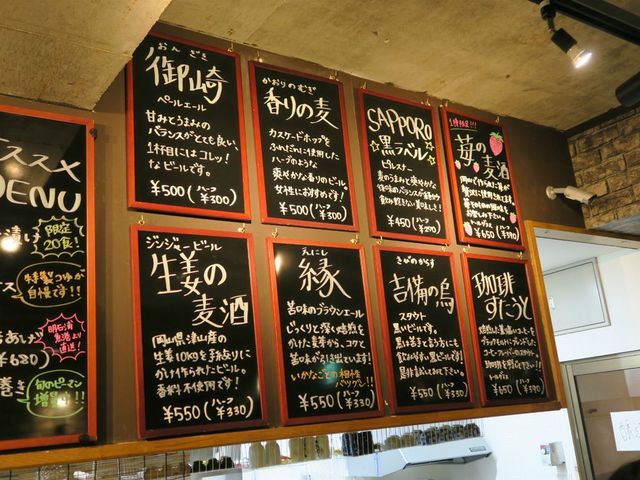 おんざき
御崎
ペールエール
甘みとうまみの
バランスがとても良い、
1杯目にはコレ!
なビールです。
¥500(ハーフ ¥300)
かおりのむぎ
香りの麦
カスケードホップを
ふんだんに使用した
ハーブのような
爽やかな香りのビール。
女性におすすめです!
¥500(ハーフ ¥300)
SAPPORO
☆黒ラベル☆
ピルスナー
麦のうまみと爽やかな
後味のバランスが
¥450(ハーフ ¥290)
苺の
麦酒
トールグラス
¥650(ハーフ ¥390)
ススメ
MENU
限定
20食!
特製つゆが
自慢です!!
明石浦
漁港より
直送
¥680)
旬のピーマン
増量中!!
ジンジャービール
生姜の
麦酒
岡山県津山産の
生姜10kgを手絞りに
かけ作られたビール。
香料不使用です!
¥550(ハーフ ¥330)
えにし
縁
苦味のブラウンエール
じっくりと深く焙煎を
かけた麦芽から、コクと
苦味が引き出ています!
いかなごとの相性
バツグン!!
¥550(ハーフ ¥330)
きびのからす
吉備の烏
スタウト
黒いビールです。
黒が苦手と言う方にも
飲みやすい黒ビールです!
是非試してみて下さい。
¥550(ハーフ ¥330)
珈琲
すたうと
コーヒーフレーバーのスタウト。
トールグラス
¥650(ハーフ ¥390)